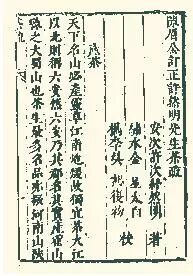 陳眉公訂正許然明先生茶疏
許次紓然明 著
繡水金 太白
校
產茶
天下名山必產靈草江南地煖故獨宜茶大江
以北則稱六安然六安乃其郡名其實產霍山
縣之大蜀山也茶生最多名品亦振河南山陝